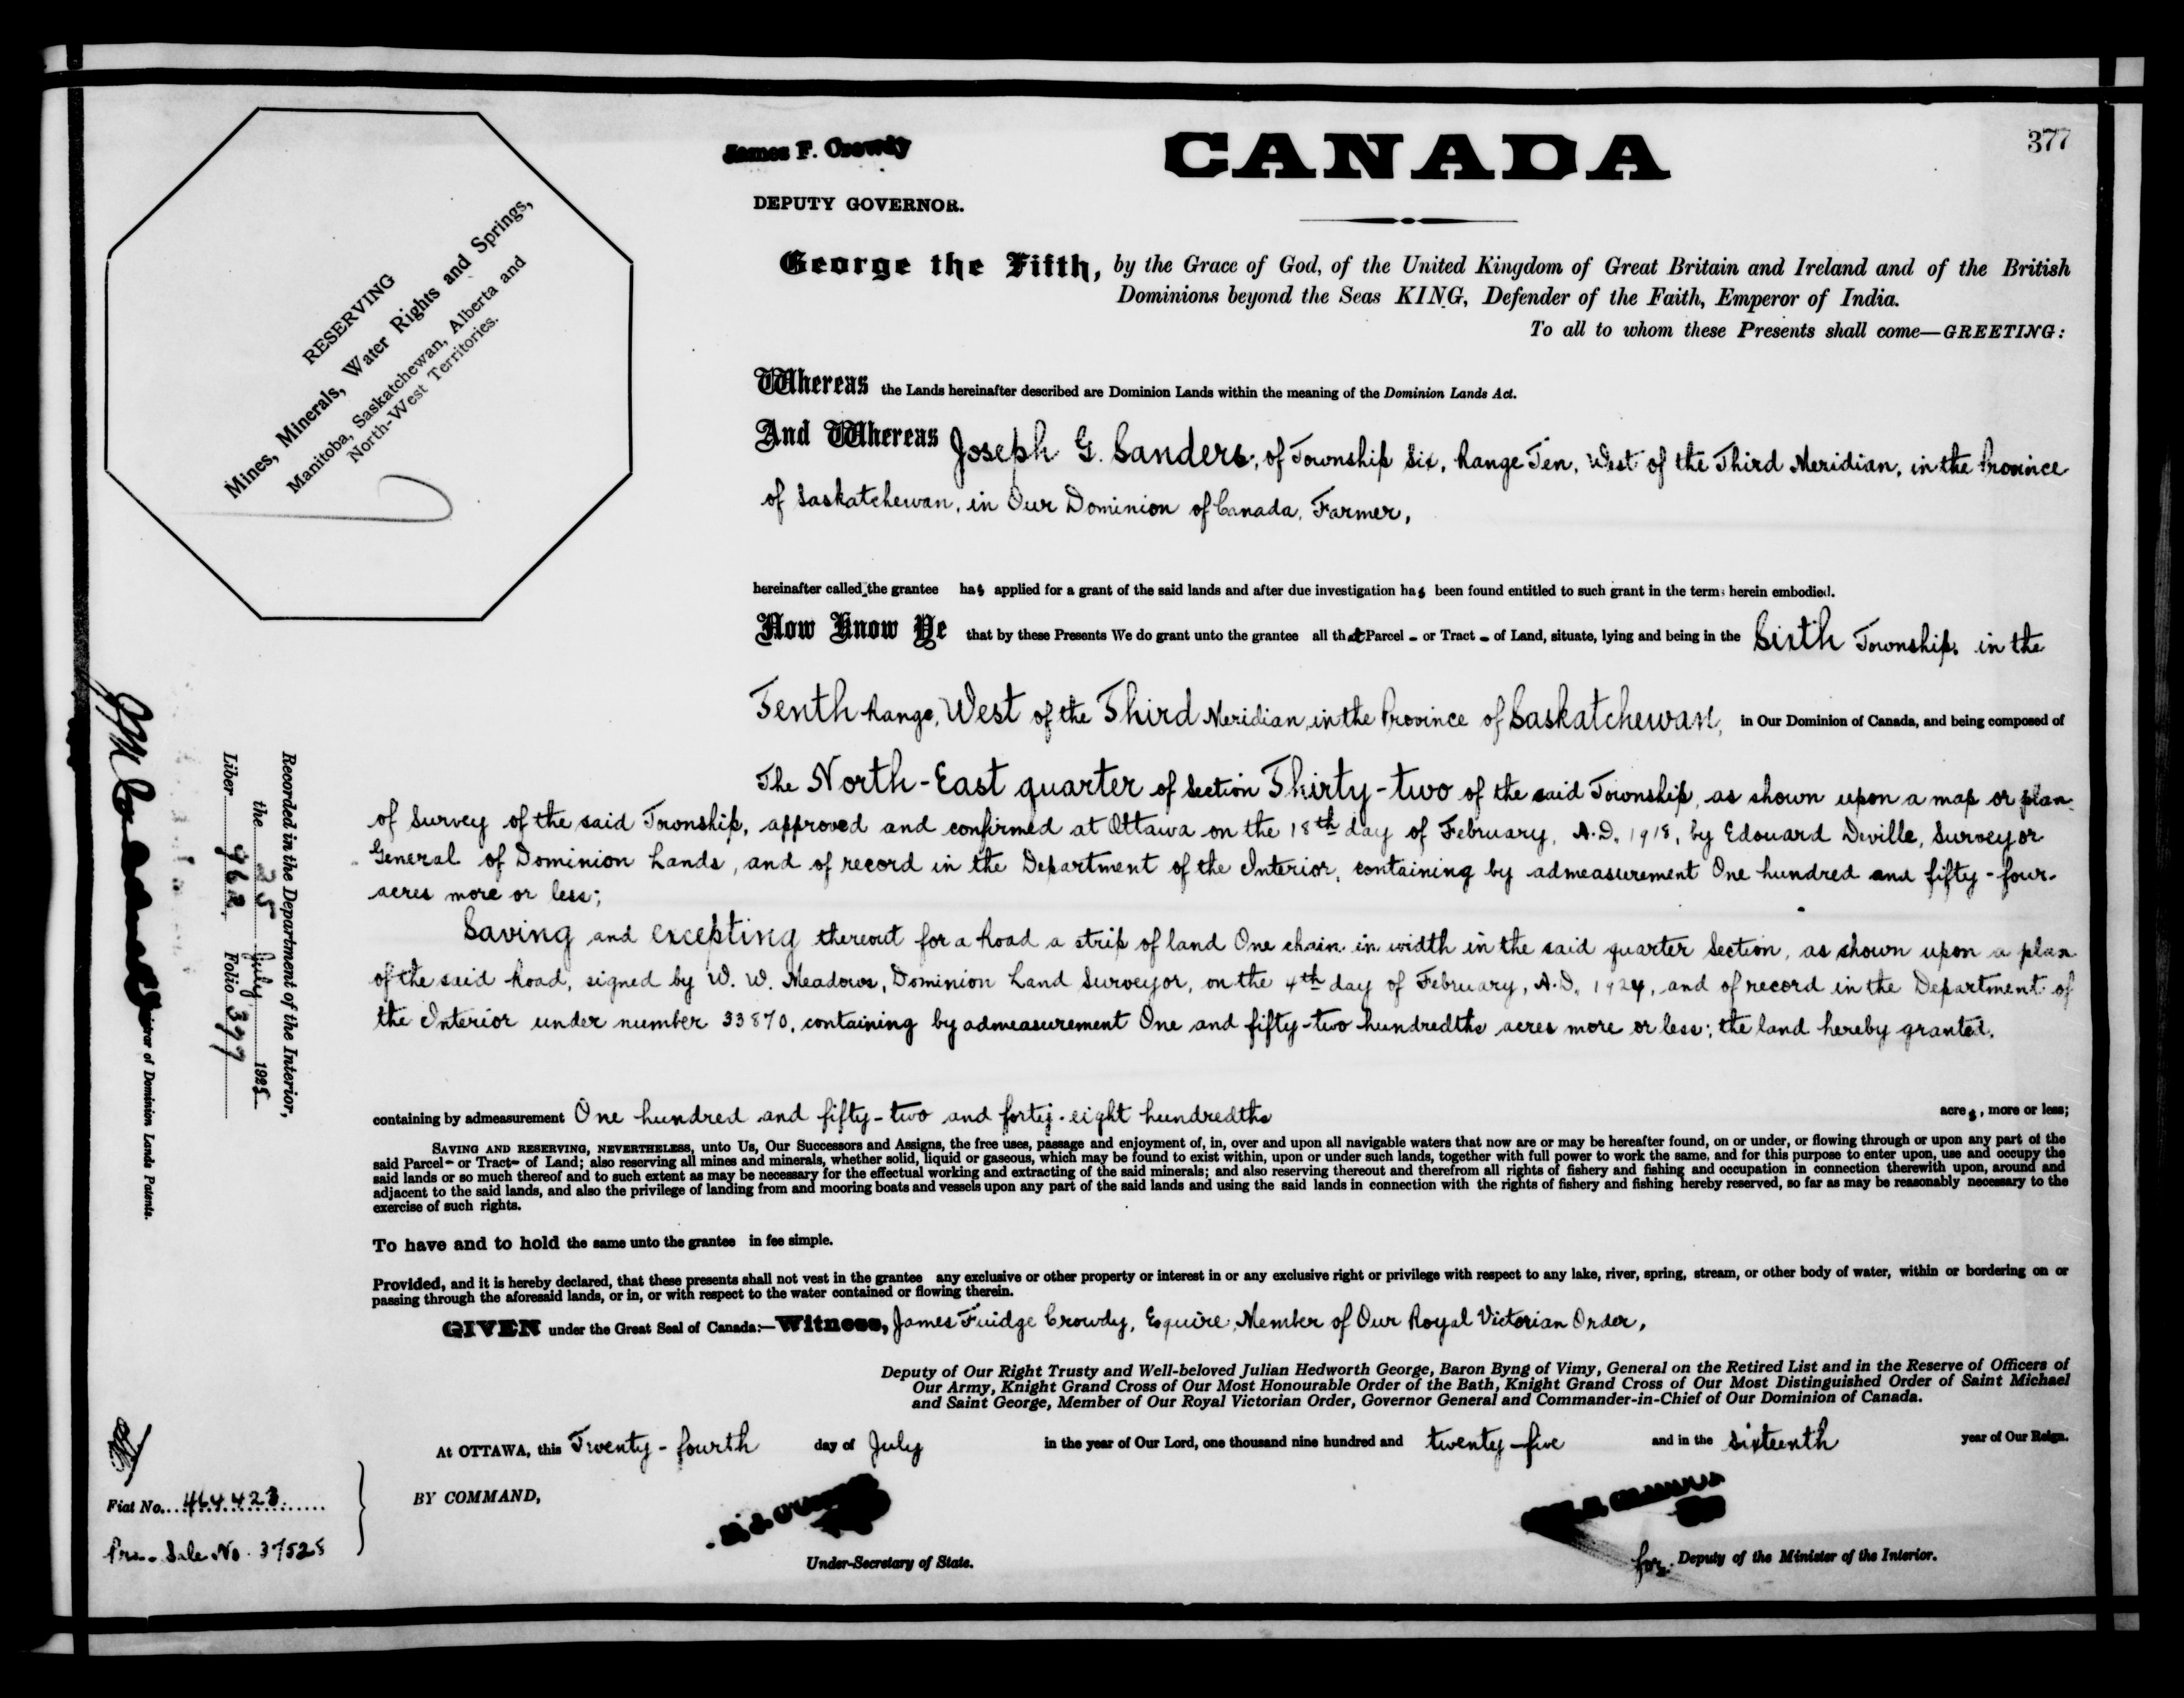 377
James F. Crowdy
DEPUTY GOVERNOR.
CANADA
RESERVING
Mines, Minerals, Water Rights and Springs,
Manitoba, Saskatchewan, Alberta and
North-West Territories.
George the Fifth, by the Grace of God, of the United Kingdom of Great Britain and Ireland and of the British
Dominions beyond the Seas KING, Defender of the Faith, Emperor of India.
To all to whom these Presents shall come—GREETING:
Whereas the Lands hereinafter described are Dominion Lands within the meaning of the Dominion Lands Act.
And Whereas Joseph G. Sanders, of Township Six, Range Ten, West of the Third Meridian, in the Province
of Saskatchewan, in Our Dominion of Canada, Farmer,
hereinafter called the grantee has applied for a grant of the said lands and after due investigation has been found entitled to such grant in the terms herein embodied.
Now Know Ye that by these Presents We do grant unto the grantee all that Parcel - or Tract - of Land, situate, lying and being in the Sixth Township, in the
Tenth Range, West of the Third Meridian, in the Province of Saskatchewan, in Our Dominion of Canada, and being composed of
The North-East quarter of Section Thirty-two of the said Township, as shown upon a map or plan
of Survey of the said Township, approved and confirmed at Ottawa on the 18th day of February, A.D. 1918, by Edouard Deville, Surveyor
General of Dominion Lands, and of record in the Department of the Interior, containing by admeasurement One hundred and fifty-four
acres more or less;
Saving and excepting thereout for a Road a strip of land One chain in width in the said quarter Section, as shown upon a plan
of the said Road, signed by W. W. Meadows, Dominion Land Surveyor, on the 4th day of February, A.D. 1924, and of record in the Department of
the Interior under number 33870, containing by admeasurement One and fifty-two hundredths acres more or less; the land hereby granted,
containing by admeasurement One hundred and fifty-two and forty-eight hundredths acres, more or less;
SAVING AND RESERVING, NEVERTHELESS, unto Us, Our Successors and Assigns, the free uses, passage and enjoyment of, in, over and upon all navigable waters that now are or may be hereafter found, on or under, or flowing through or upon any part of the
said Parcel- or Tract- of Land; also reserving all mines and minerals, whether solid, liquid or gaseous, which may be found to exist within, upon or under such lands, together with full power to work the same, and for this purpose to enter upon, use and occupy the
said lands or so much thereof and to such extent as may be necessary for the effectual working and extracting of the said minerals; and also reserving thereout and therefrom all rights of fishery and fishing and occupation in connection therewith upon, around and
adjacent to the said lands, and also the privilege of landing from and mooring boats and vessels upon any part of the said lands and using the said lands in connection with the rights of fishery and fishing hereby reserved, so far as may be reasonably necessary to the
exercise of such rights.
To have and to hold the same unto the grantee in fee simple.
Provided, and it is hereby declared, that these presents shall not vest in the grantee any exclusive or other property or interest in or any exclusive right or privilege with respect to any lake, river, spring, stream, or other body of water, within or bordering on or
passing through the aforesaid lands, or in, or with respect to the water contained or flowing therein.
GIVEN under the Great Seal of Canada:—Witness, James Fuidge Crowdy, Esquire, Member of Our Royal Victorian Order,
Deputy of Our Right Trusty and Well-beloved Julian Hedworth George, Baron Byng of Vimy, General on the Retired List and in the Reserve of Officers of
Our Army, Knight Grand Cross of Our Most Honourable Order of the Bath, Knight Grand Cross of Our Most Distinguished Order of Saint Michael
and Saint George, Member of Our Royal Victorian Order, Governor General and Commander-in-Chief of Our Dominion of Canada.
At OTTAWA, this Twenty-fourth day of July in the year of Our Lord, one thousand nine hundred and twenty-five and in the sixteenth year of Our Reign.
BY COMMAND,
Under-Secretary of State.
for Deputy of the Minister of the Interior.
Recorded in the Department of the Interior,
the 25 July 1925
Liber 962 Folio 377
of Dominion Lands Patents.
Fiat No. 464423
Pre. Sale No. 37525